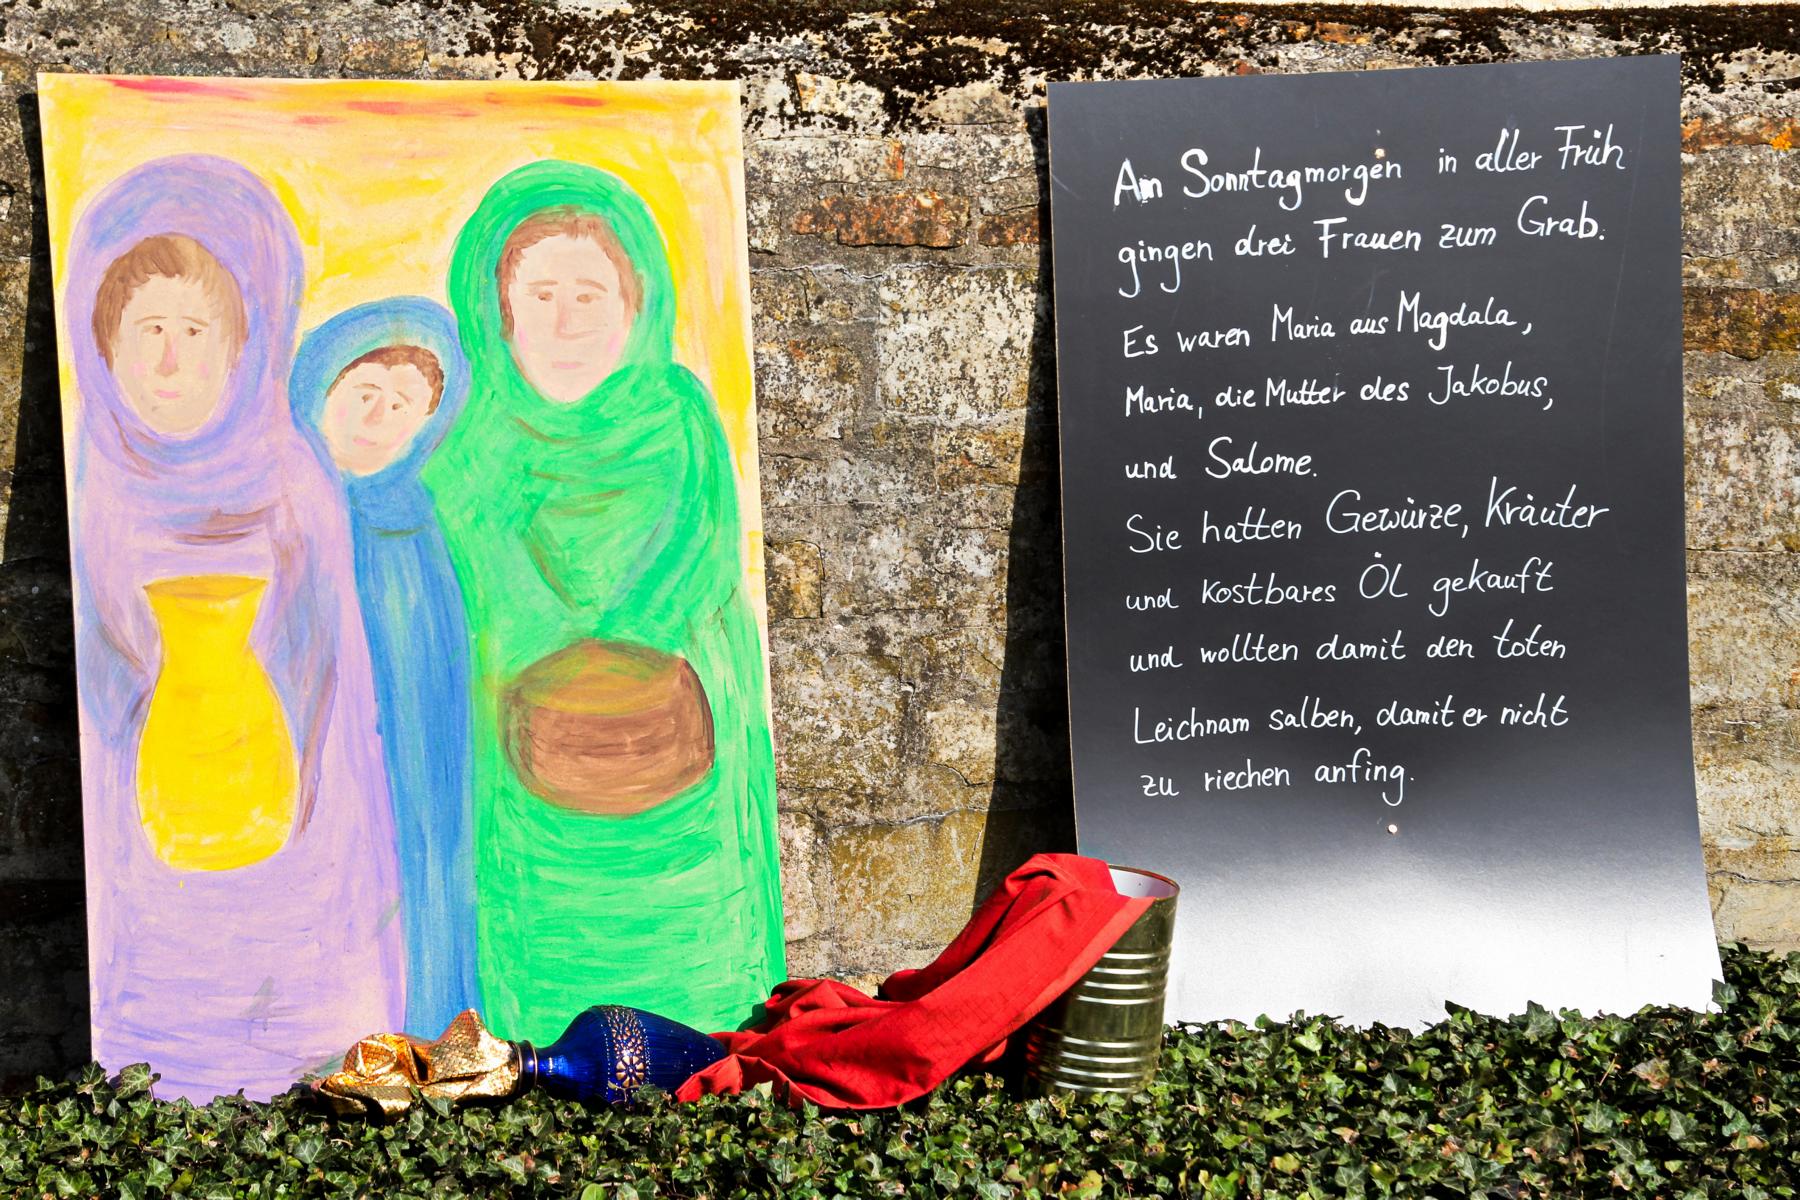 Am Sonntagmorgen in aller Früh
gingen drei Frauen zum Grab.
Es waren Maria aus Magdala,
Maria, die Mutter des Jakobus,
und Salome.
Sie hatten Gewürze, Kräuter
und kostbares Öl gekauft
und wollten damit den toten
Leichnam salben, damit er nicht
zu riechen anfing.